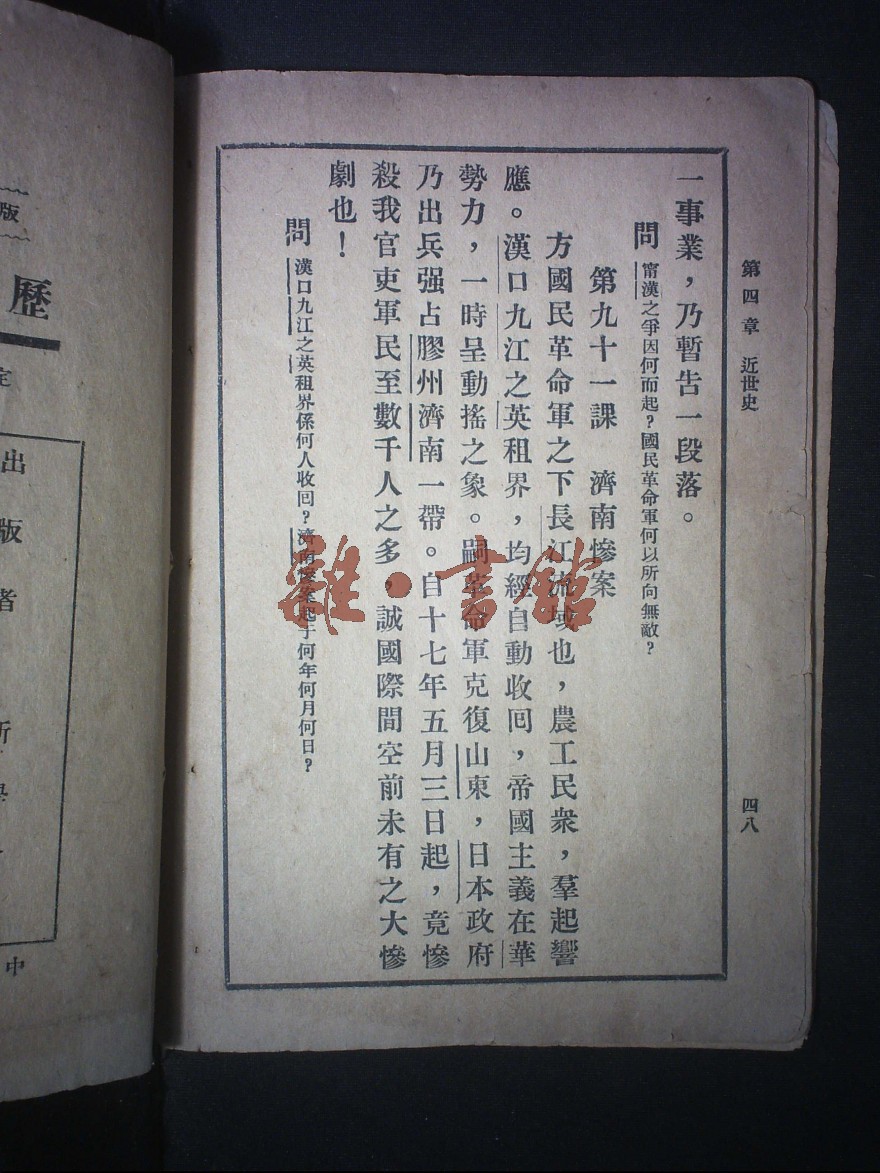 第四章　近世史　四八
一事業，乃暫告一段落。
問　甯漢之爭因何而起？國民革命軍何以所向無敵？
第九十一課　濟南慘案
方國民革命軍之下長江流域也，農工民衆，羣起響
應。漢口九江之英租界，均經自動收囘，帝國主義在華
勢力，一時呈動搖之象。嗣革命軍克復山東，日本政府
乃出兵强占膠州濟南一帶。自十七年五月三日起，竟慘
殺我官吏軍民至數千人之多，誠國際間空前未有之大慘
劇也！
問　漢口九江之英租界係何人收囘？濟南慘案起于何年何月何日？
雜·書館
出版者
版
歷
中